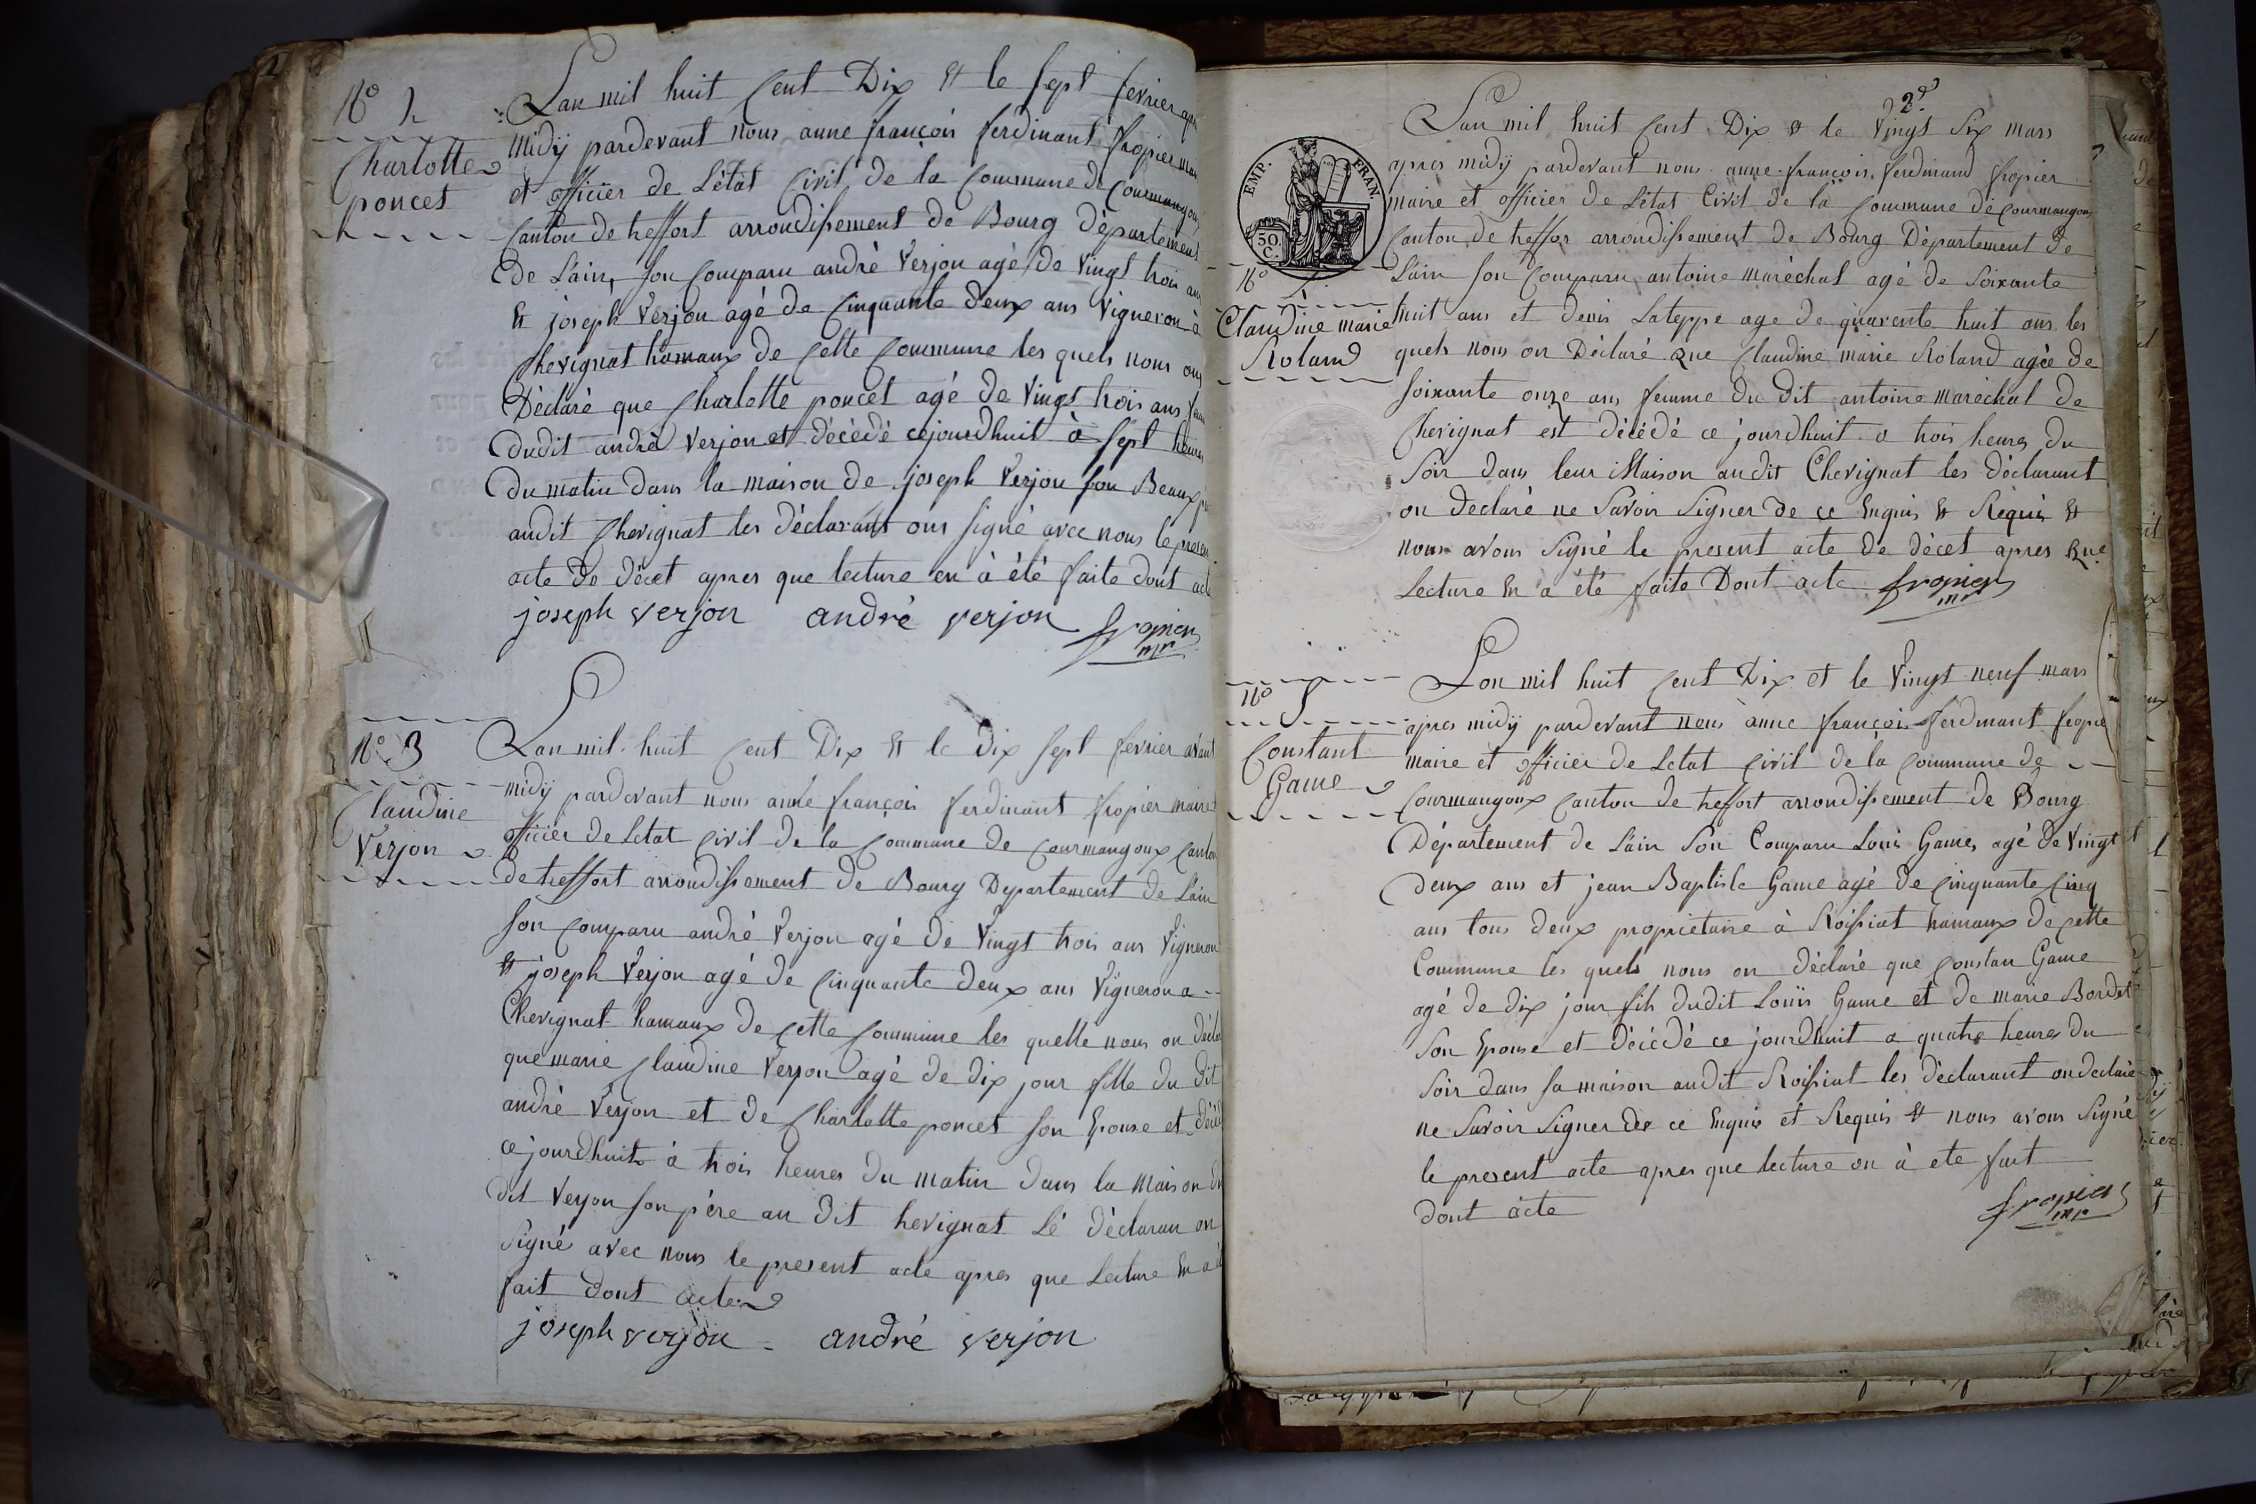 N° 2
Charlotte
poncet
Lan mil huit Cent Dix et le sept fevrier
midÿ pardevant nous anne françois ferdinant fropier
et officier de L'état Civil de la Commune de Courmangoux
Canton de treffort arrondissement de Bourg Département
de Lain, son Comparu andré Verjon agé de Vingt trois ans
et joseph Verjon agé de Cinquante deux ans Vigneron à
Chevignat hamaux de Cette Commune les quels nous on
Déclaré que Charlotte poncet agé de Vingt trois ans
dudit andré Verjon et décédé cejourdhuit à sept heures
du matin dans la maison de joseph Verjon son Beaux
audit Chevignat les déclarant ons signé avec nous le
acte de décet apres que lecture en à été faite dont acte
joseph verjon andré verjon fropier
mr
N° 3
Claudine
Verjon
Lan mil huit Cent Dix et le dix sept fevrier avant
midÿ pardevant nous anne françois ferdinant fropier maire
officier de Letat Civil de la Commune de Courmangoux Canton
de treffort arrondissement de Bourg Departement de Lain
son Comparu andré Verjon agé de Vingt trois ans Vigneron
et joseph Verjon agé de Cinquante deux ans Vigneron a
Chevignat hamaux de Cette Commune les quelle nous on
que marie Claudine Verjon agé de dix jour fille du dit
andré Verjon et de Charlotte poncet son Epouse et
ce jourdhuit à trois heures du matin dans la maison
dit Verjon son pére au dit hevignat Lé déclaran on
signé avec nous le present acte apres que Lecture En a
fait dont acte
joseph verjon andré verjon
2e
EMP. FRAN.
50 C.
N° 4
Claudine marie
Roland
Lan mil huit Cent Dix et le Vingt Six mars
apres midÿ pardevant nous anne françois ferdinand fropier
maire et officier de L'état Civil de la Commune de Courmangoux
Canton de treffor arrondissement de Bourg Département de
Lain son Comparu antoine maréchal agé de Soixante
huit ans et denis Lateppe age de quarente huit ans les
quels nous on Déclaré que Claudine marie Roland agée de
soixante onze ans femme du dit antoine maréchal de
Chevignat est décédé ce jourdhuit a trois heures du
Soir dans leur Maison audit Chevignat les déclarant
on declaré ne Savoir Signer de ce Enquis et Requis et
nous avons Signé le present acte de décet apres que
Lecture En a été faite Dont acte fropier
mr
N° 5
Constant
Game
Lon mil huit Cent Dix et le Vingt neuf mars
apres midÿ pardevant nous anne françois ferdinant fropie
maire et officier de Letat Civil de la Commune de
Courmangoux Canton de treffort arrondissement de Bourg
Département de Lain Son Comparu Louis Game, agé de Vingt
deux ans et jean Baptiste Game agé de Cinquante Cinq
ans tous deux proprietaire à Roissiat hamaux de cette
Commune les quels nous on déclaré que Constan Game
agé de dix jour fils dudit Louis Game et de marie Bordet
Son Epouse et décédé ce jourdhuit a quatre heures du
Soir dans sa maison audit Roissiat les déclarant on declaré
ne Savoir Signer de ce Enquis et Requis et nous avons Signé
le present acte apres que lecture on à ete fait
dont acte fropier
mr